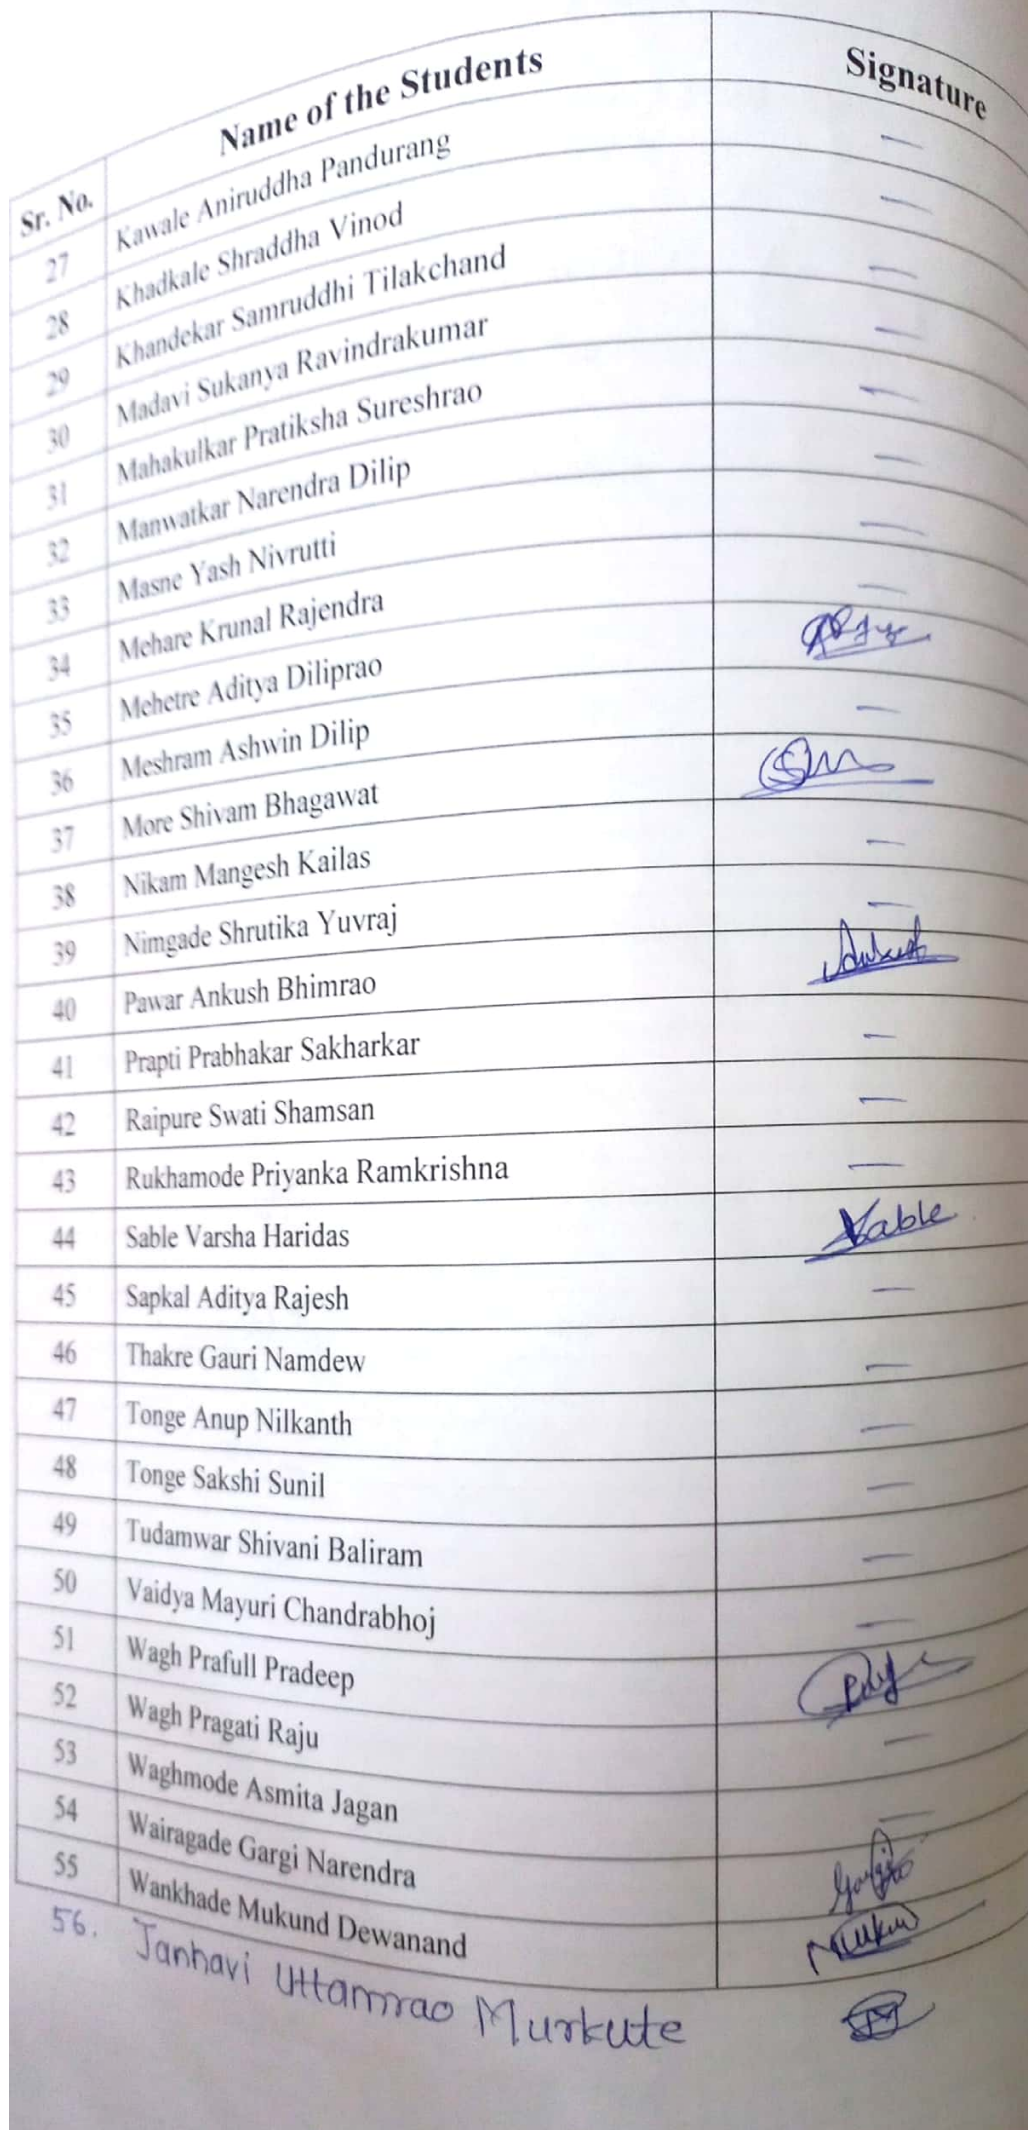 Sr. No. Name of the Students Signature
27 Kawale Aniruddha Pandurang —
28 Khadkale Shraddha Vinod —
29 Khandekar Samruddhi Tilakchand —
30 Madavi Sukanya Ravindrakumar —
31 Mahakulkar Pratiksha Sureshrao —
32 Manwatkar Narendra Dilip —
33 Masne Yash Nivrutti —
34 Mehare Krunal Rajendra —
35 Mehetre Aditya Diliprao
36 Meshram Ashwin Dilip —
37 More Shivam Bhagawat
38 Nikam Mangesh Kailas —
39 Nimgade Shrutika Yuvraj —
40 Pawar Ankush Bhimrao Ankush
41 Prapti Prabhakar Sakharkar —
42 Raipure Swati Shamsan —
43 Rukhamode Priyanka Ramkrishna —
44 Sable Varsha Haridas Vable
45 Sapkal Aditya Rajesh —
46 Thakre Gauri Namdew —
47 Tonge Anup Nilkanth —
48 Tonge Sakshi Sunil —
49 Tudamwar Shivani Baliram —
50 Vaidya Mayuri Chandrabhoj —
51 Wagh Prafull Pradeep
52 Wagh Pragati Raju —
53 Waghmode Asmita Jagan —
54 Wairagade Gargi Narendra
55 Wankhade Mukund Dewanand
56. Janhavi Uttamrao Murkute